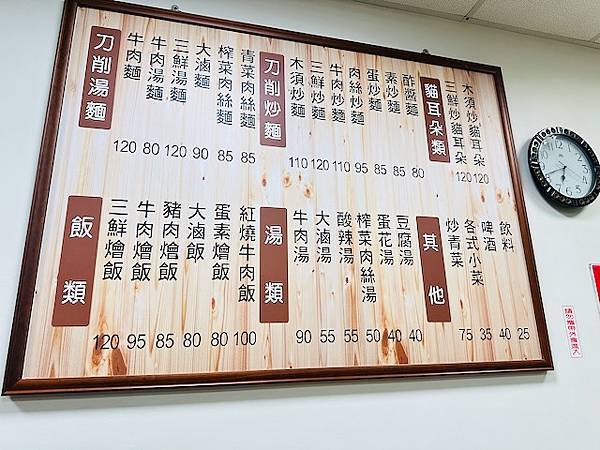 刀削湯麵
牛肉麵 120
牛肉湯麵 80
三鮮湯麵 120
大滷麵 90
榨菜肉絲麵 85
青菜肉絲麵 85
刀削炒麵
木須炒麵 110
三鮮炒麵 120
牛肉炒麵 110
肉絲炒麵 95
蛋炒麵 85
素炒麵 85
酢醬麵 80
貓耳朵類
三鮮炒貓耳朵 120
木須炒貓耳朵 120
飯類
三鮮燴飯 120
牛肉燴飯 95
豬肉燴飯 85
大滷飯 80
蛋素燴飯 80
紅燒牛肉飯 100
湯類
牛肉湯 90
大滷湯 55
酸辣湯 55
榨菜肉絲湯 50
蛋花湯 40
豆腐湯 40
其他
炒青菜 75
各式小菜 35
啤酒 40
飲料 25
請勿攜帶外食進入